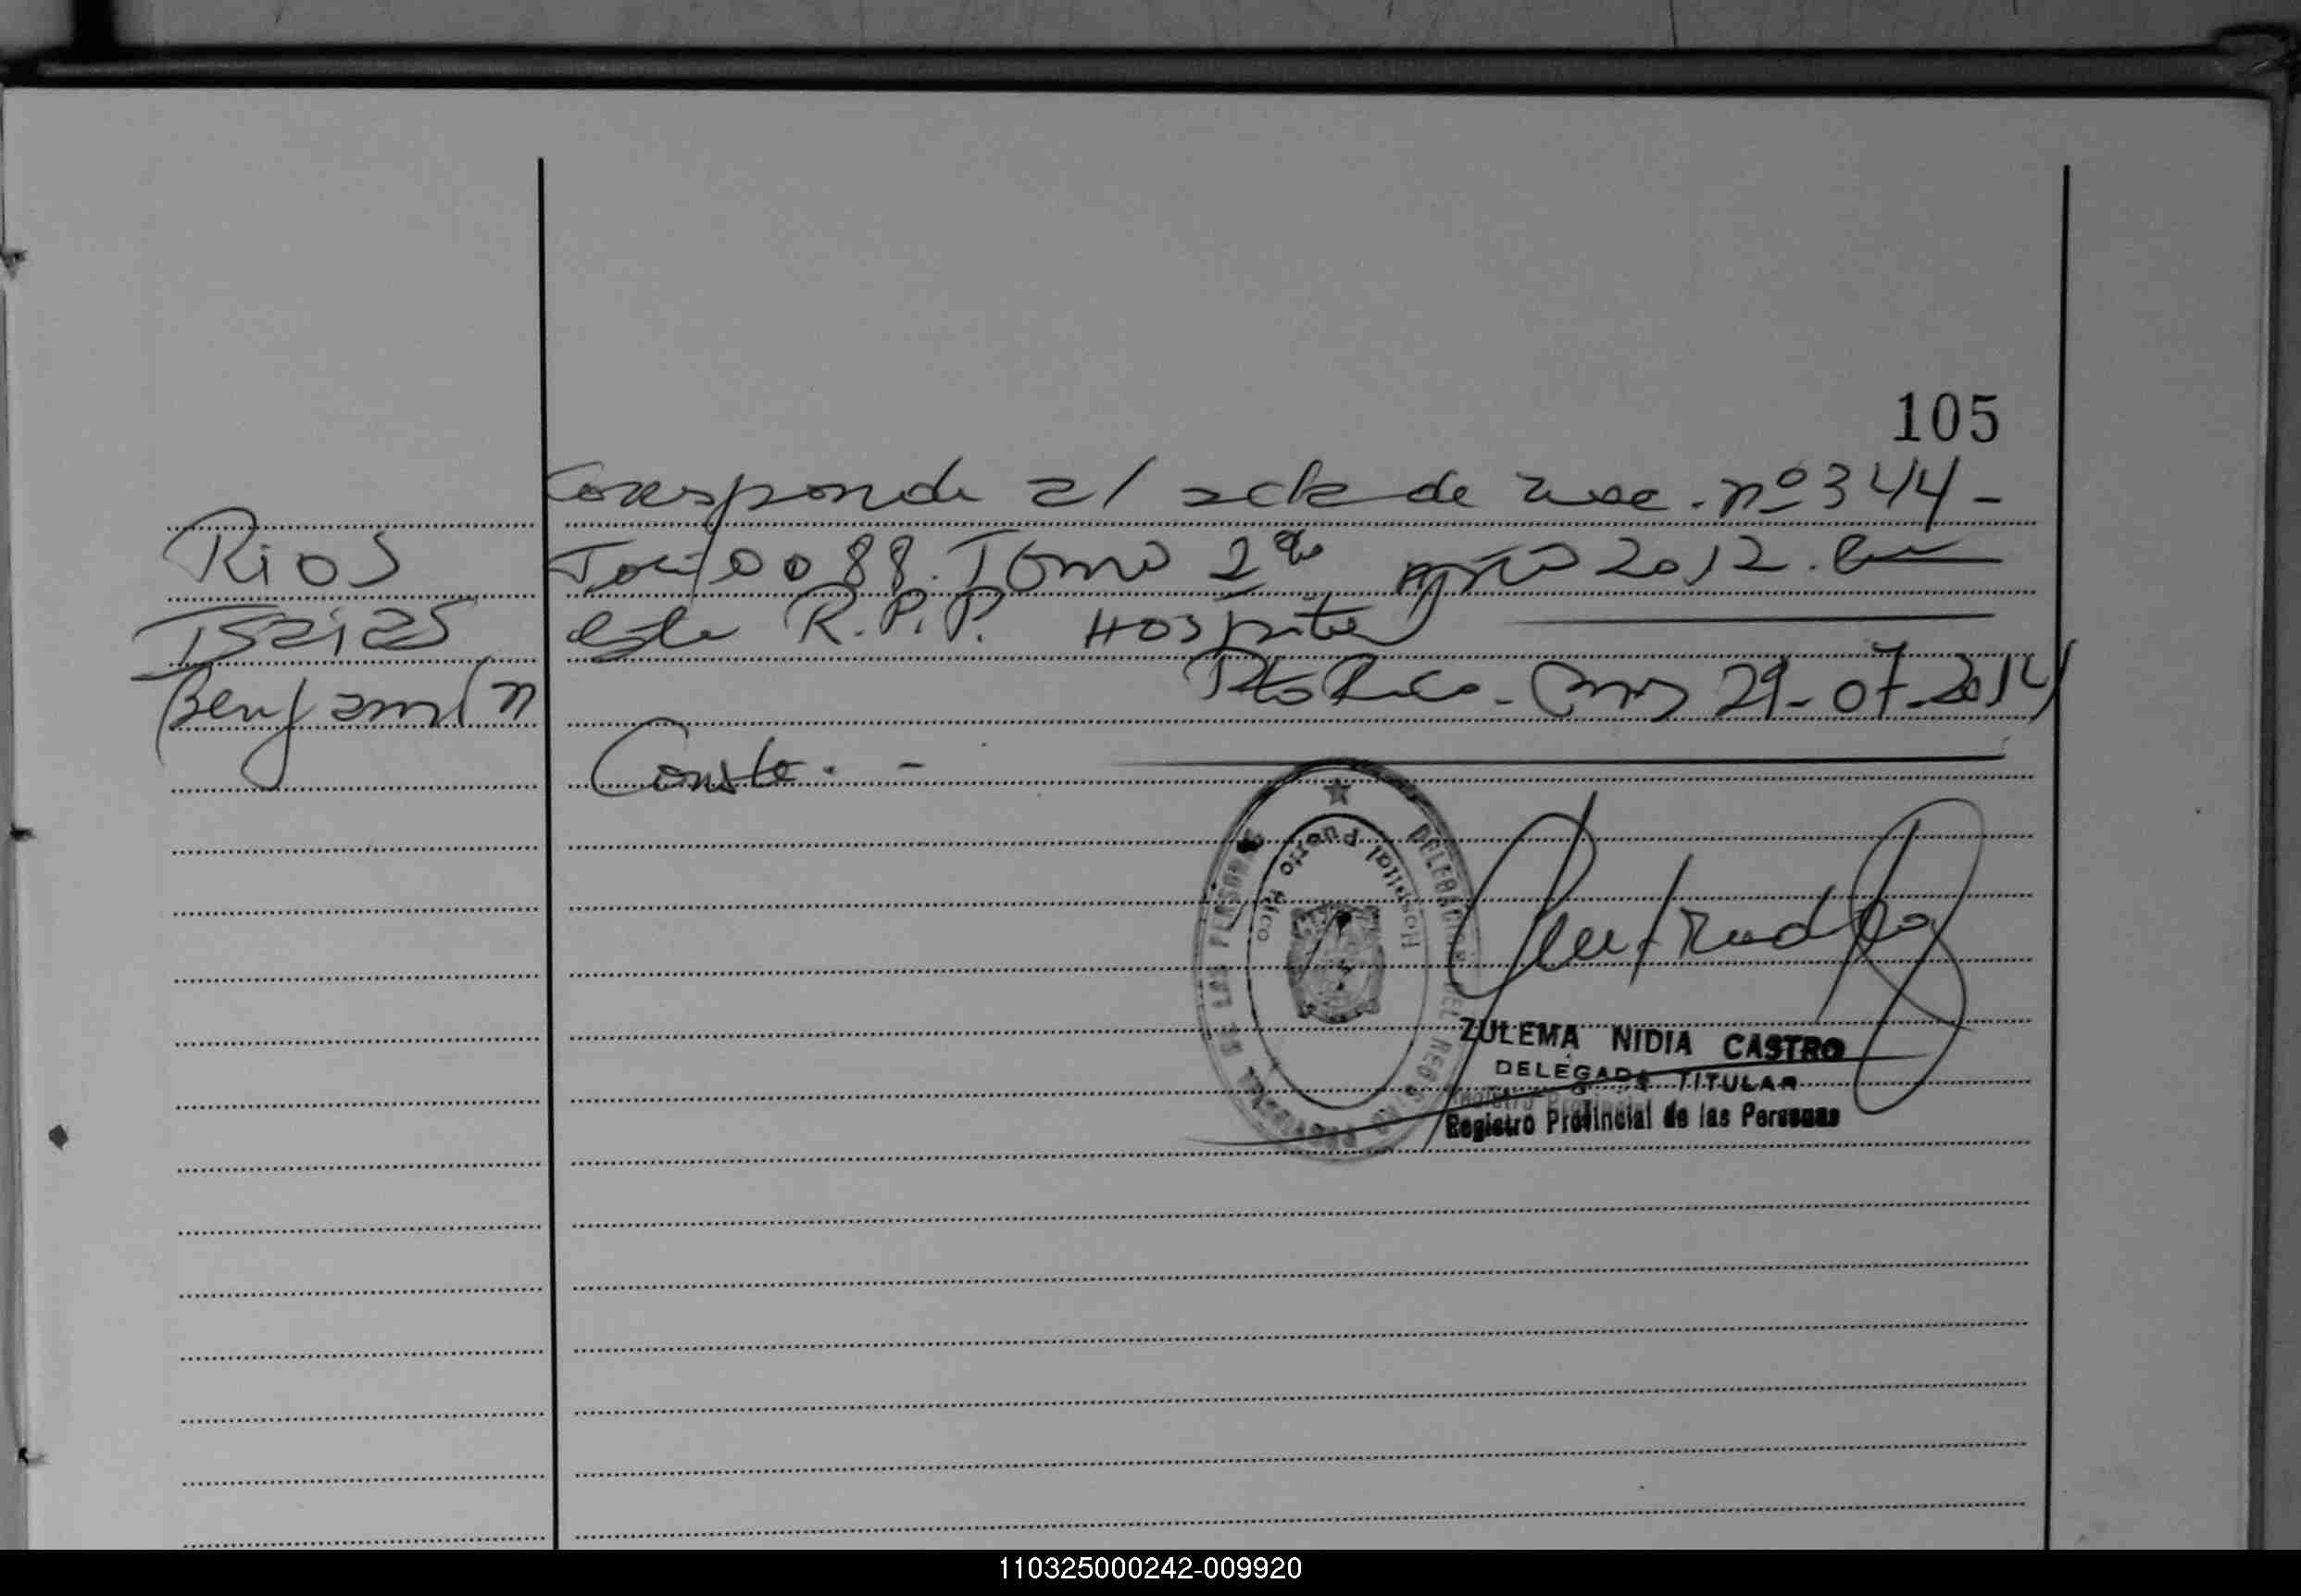 105
Corresponde al acta de nac. nº 344 -
Folio 0088. Tomo 2do año 2012. En
este R.P.P. Hospital
Pto Rico - Mnes 29-07-2014
Conste. -
Rios
Isaias
Benjamín
DELEGACION DEL REGISTRO PROVINCIAL DE LAS PERSONAS
Hospital Puerto Rico
ZULEMA NIDIA CASTRO
DELEGADA TITULAR
Registro Provincial de las Personas
110325000242-009920